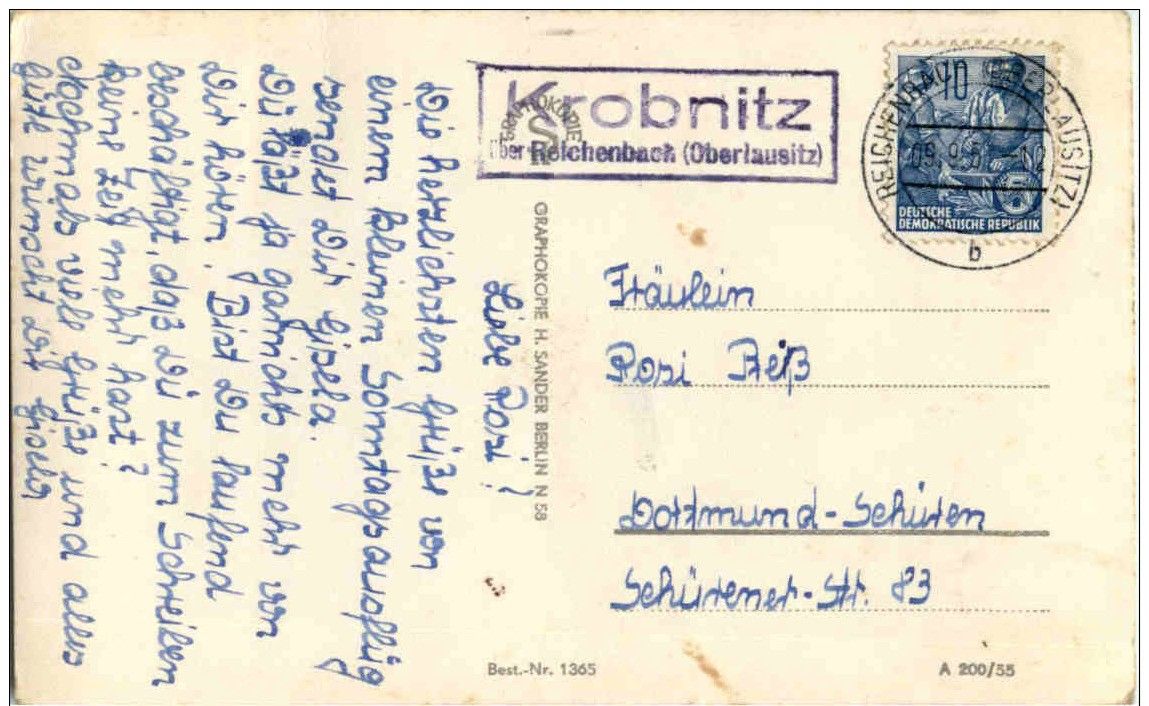 Liebe Rosi!
Die herzlichsten Grüße von
einem kleinen Sonntagsausflug
sendet Dir Gisela.
Du läßt ja garnichts mehr von
Dir hören. Bist Du laufend
beschäftigt, daß Du zum Schreiben
keine Zeit mehr hast?
Nochmals viele Grüße und alles
Gute wünscht Dir Gisela
Krobnitz
über Reichenbach (Oberlausitz)
GRAPHOKOPIE
REICHENBACH (OBERLAUSITZ)
b
10
DEUTSCHE
DEMOKRATISCHE REPUBLIK
GRAPHOKOPIE H. SANDER BERLIN N 58
Fräulein
Rosi Reiß
Dortmund-Schüren
Schürener-Str. 83
Best.-Nr. 1365
A 200/55